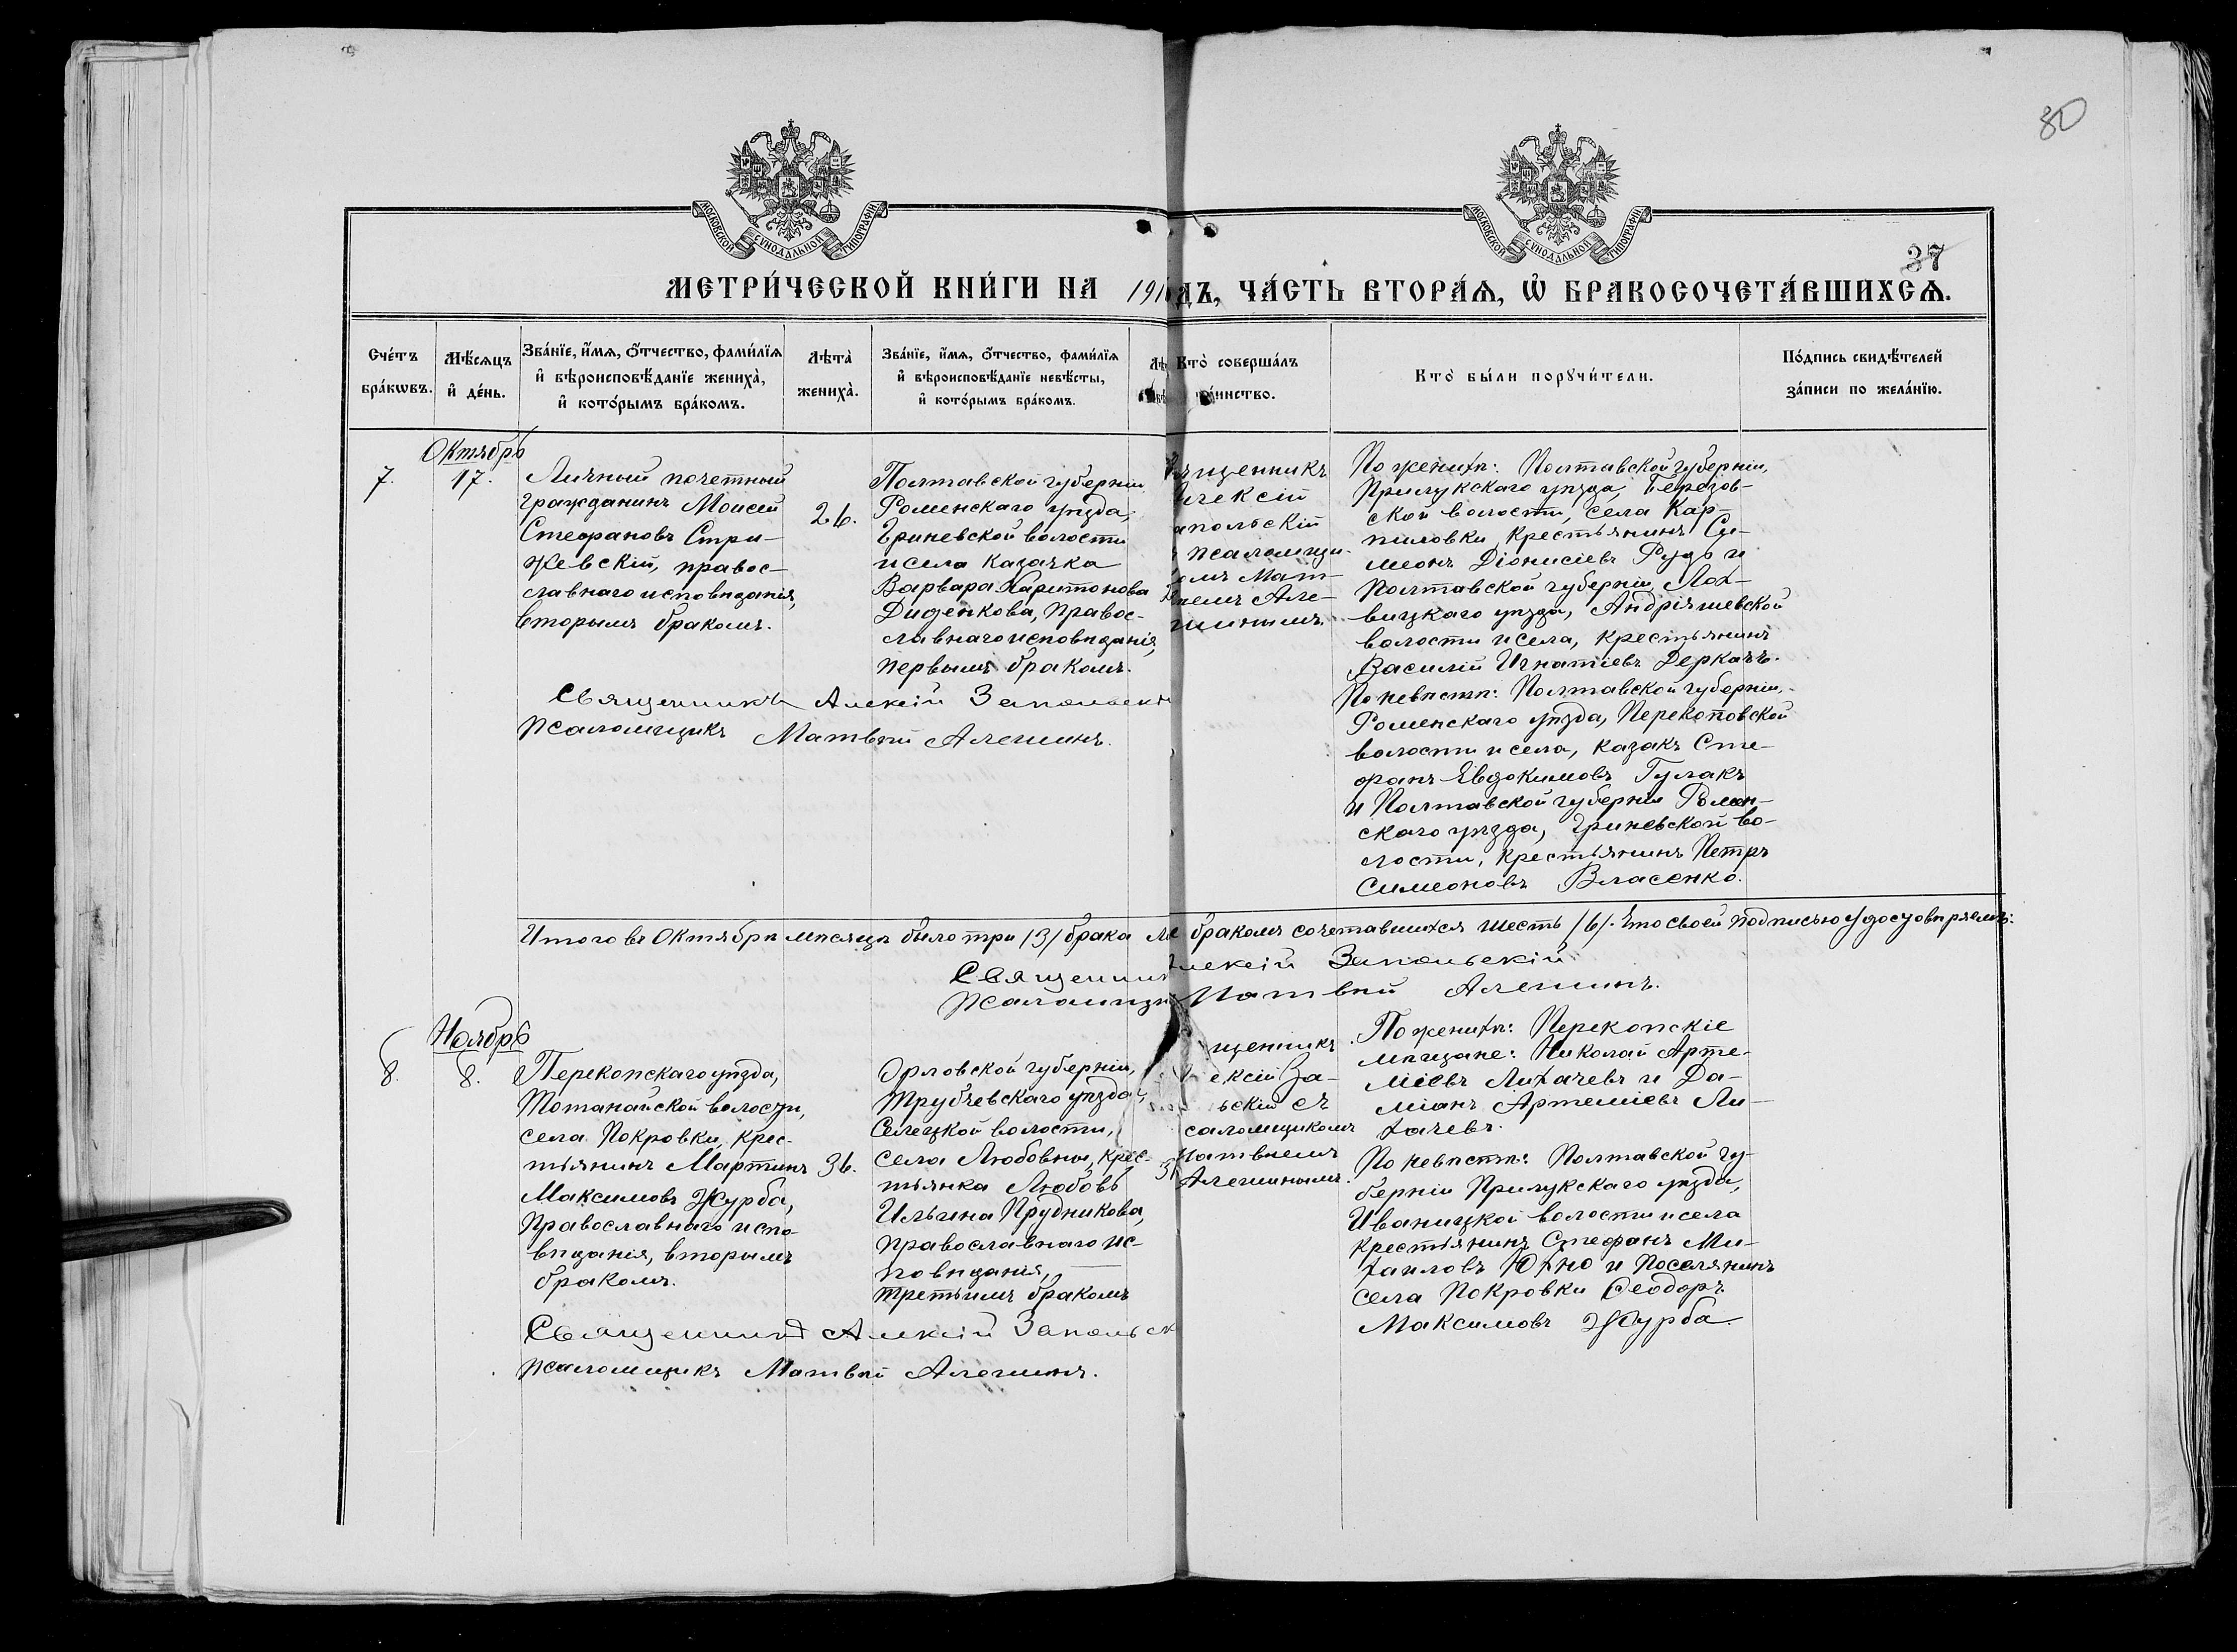 80
МОСКОВСКОЙ СѴНОДАЛЬНОЙ ТИПОГРАФІИ
МОСКОВСКОЙ СѴНОДАЛЬНОЙ ТИПОГРАФІИ
37
МЕТРИ́ЧЕСКОЙ КНИ́ГИ НА 191
ДЪ, ЧА́СТЬ ВТОРА́Ѧ, Ѡ БРАКОСОЧЕТА́ВШИХСѦ.
Сче́тъ бра́кѡвъ.
Мѣ́сѧцъ и҆ де́нь.
Зва́нїе, и҆́мѧ, ѻ҆́тчество, фами́лїѧ
и҆ вѣроисповѣ́данїе жениха̀,
и҆ кото́рымъ бра́комъ.
Лѣта̀ жениха̀.
Зва́нїе, и҆́мѧ, ѻ҆́тчество, фами́лїѧ
и҆ вѣроисповѣ́данїе невѣ́сты,
и҆ кото́рымъ бра́комъ.
Кто̀ соверша́лъ
Кто̀ бы́ли порꙋчи́тели.
По́дпись свидѣ́телей
за́писи по жела́нїю.
Октябрь
7.
17.
Личный почетный
гражданинъ Моисей
Стефановъ Стри-
жевскій, правос-
лавнаго исповѣданія,
вторымъ бракомъ.
26.
Полтавской губерніи
Роменскаго уѣзда,
Гриневской волости
и села казачка
Варвара Харитонова
Диденкова, правос-
лавнаго исповѣданія,
первымъ бракомъ.
щенникъ
ексій
апольскій
псаломщи-
омъ Мат-
ѣемъ Але-
шинымъ.
По женихѣ: Полтавской губерніи,
Прилукскаго уѣзда, Березов-
ской волости, села Кар-
пиловки крестьянинъ Си-
меонъ Діонисіевъ Рудь и
Полтавской губерніи Лох-
вицкаго уѣзда, Андріяшевской
волости и села, крестьянинъ
Василій Игнатіевъ Деркачъ.
По невѣстѣ: Полтавской губерніи,
Роменскаго уѣзда, Перекоповской
волости и села, казакъ Сте-
фанъ Евдокимовъ Гулакъ
и Полтавской губерніи Ромен-
скаго уѣзда, Гриневской во-
лости, крестьянинъ Петръ
Симеоновъ Власенко.
Священникъ Алексій Запольскі
Псаломщикъ Матвѣй Алешинъ.
Итого въ Октябрѣ мѣсяцѣ было три /3/ брака бракомъ сочетавшихся шесть /6/. Что своей подписью удостовѣряемъ:
Священник лексій Запольскій
Псаломщи Матвѣй Алешинъ.
Ноябрь
8.
8.
Перекопскаго уѣзда,
Тотанайской волости,
села Покровки, крес-
тьянинъ Мартинъ
Максимовъ Журба,
православнаго испо-
вѣданія, вторымъ
бракомъ.
36.
Орловской губерніи,
Трубчевскаго уѣзда,
Селецкой волости,
села Любовны, крес-
тьянка Любовь
Ильина Прудникова,
православнаго ис-
повѣданія,
третьимъ бракомъ
щенникъ
ексій За-
ьскій съ
саломщикомъ
Матвѣемъ
Алешинымъ.
По женихѣ: Перекопскіе
мѣщане: Николай Арте-
міевъ Лихачевъ и Да-
міанъ Артеміевъ Ли-
хачевъ.
По невѣстѣ: Полтавской гу-
берніи Прилукскаго уѣзда,
Иваницкой волости и села
крестьянинъ Стефанъ Ми-
хаиловъ Юхно и поселянинъ
села Покровки Ѳеодоръ
Максимовъ Журба.
Священникъ Алексій Запольск
Псаломщикъ Матвѣй Алешинъ.